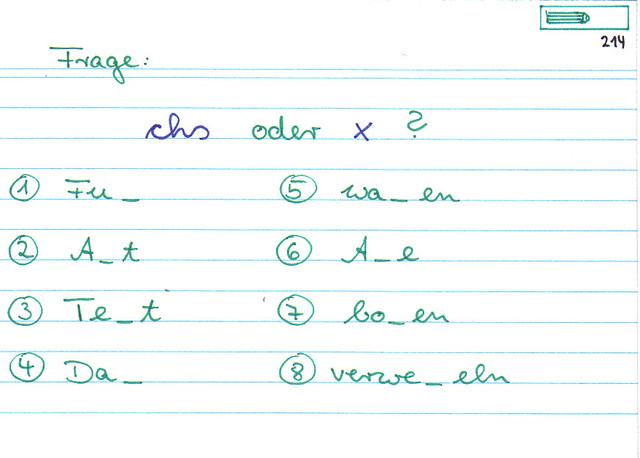 214
Frage:
chs oder x ?
① Fu_ ⑤ wa_en
② A_t ⑥ A_e
③ Te_t ⑦ bo_en
④ Da_ ⑧ verwe_eln